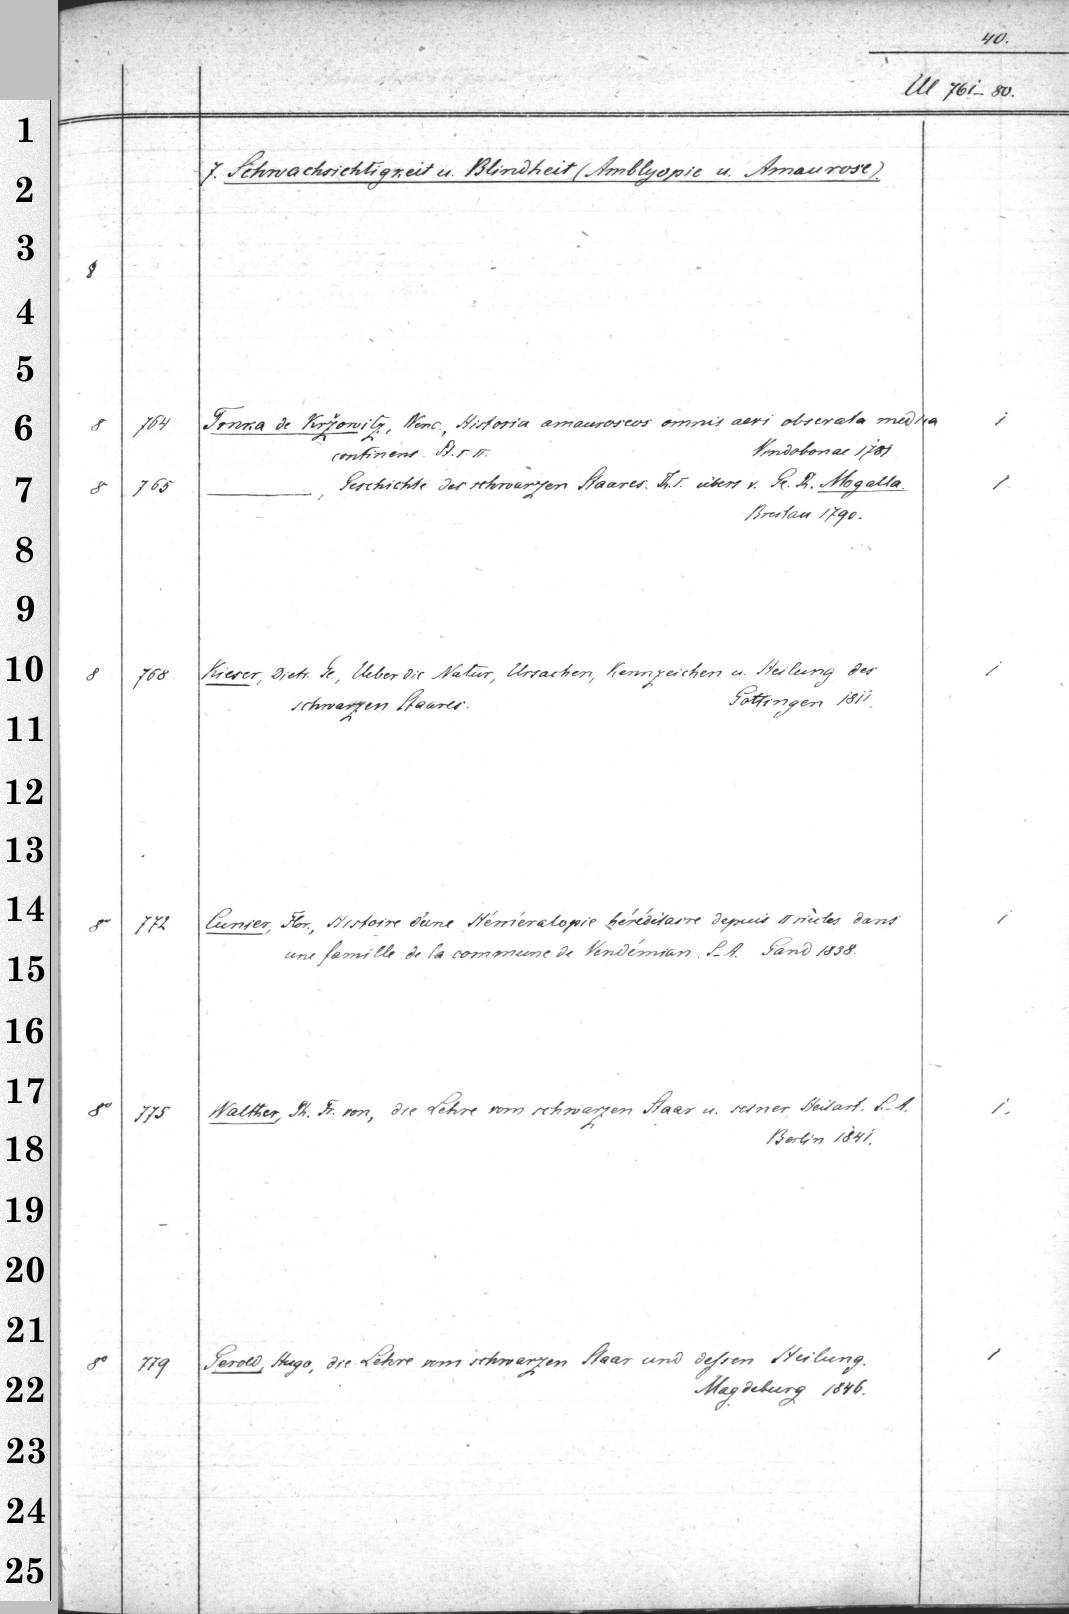 40.
Ul 761-80.
1
7. Schwachsichtigkeit u. Blindheit (Amblyopie u. Amaurose).
2
3
8
4
5
6
8 764 Trnka de Kržowitz, Wenc., Historia amauroseos omnis aevi observata medica 1
continens. P. I. II. Vindobonae 1781
7
8 765 ———, Geschichte des schwarzen Staares. Th. I. übers v. Ge. Th. Mogalla. 1.
Breslau 1790.
8
9
10
8 768 Kieser, Dietr. Ge., Ueber die Natur, Ursachen, Kennzeichen u. Heilung des 1
schwarzen Staares. Göttingen 1811.
11
12
13
14
8° 772 Cunier, Flor., Histoire d'une Héméralopie héréditaire depuis II siècles dans 1
une famille de la commune de Vendémian. S.-A. Gand 1838.
15
16
17
8° 775 Walther, Ph. Fr. von, die Lehre vom schwarzen Staar u. seiner Heilart. S.-A. 1.
Berlin 1841.
18
19
20
21
8° 779 Gerold, Hugo, die Lehre vom schwarzen Staar und dessen Heilung. 1
Magdeburg 1846.
22
23
24
25